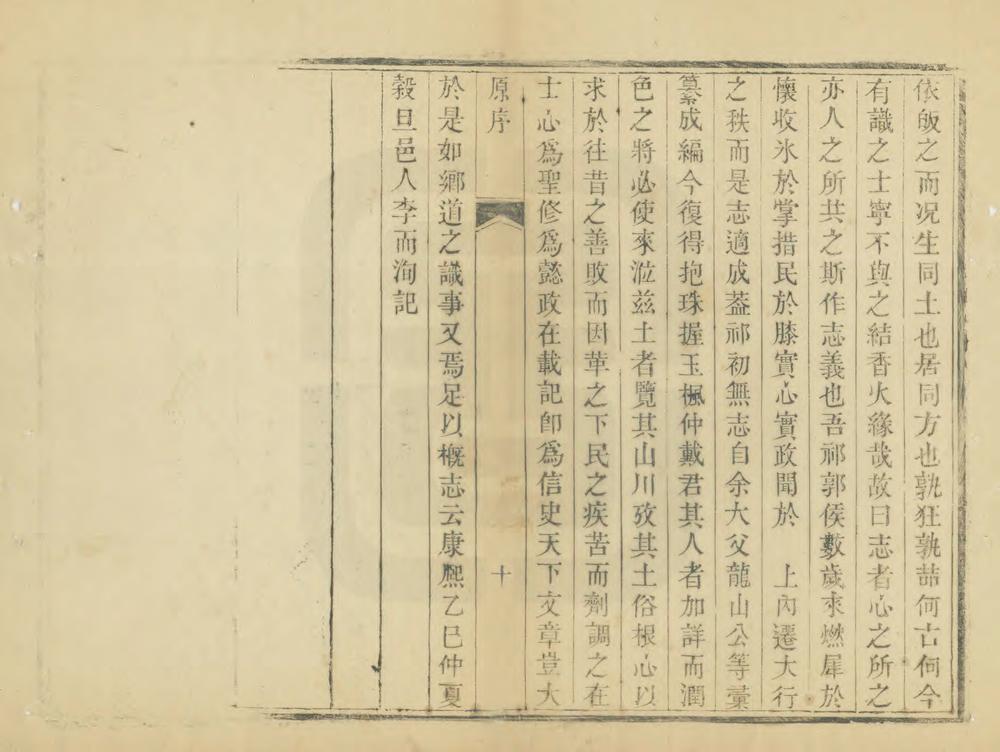 依皈之而况生同土也居同方也孰狂孰喆何古何今
有識之士寧不與之結香火緣哉故曰志者心之所之
亦人之所共之斯作志義也吾祁郭侯數歲來燃犀於
懷收氷於掌措民於膝實心實政聞於　上內遷大行
之秩而是志適成葢祁初無志自余大父龍山公等藁
纂成編今復得抱珠握玉楓仲戴君其人者加詳而潤
色之將必使來涖茲土者覽其山川攷其土俗根心以
求於往昔之善敗而因革之下民之疾苦而劑調之在
士心爲聖修爲懿政在載記卽爲信史天下文章豈大
原序　十
於是如鄉道之識事又焉足以概志云康熈乙巳仲夏
穀旦邑人李而洵記